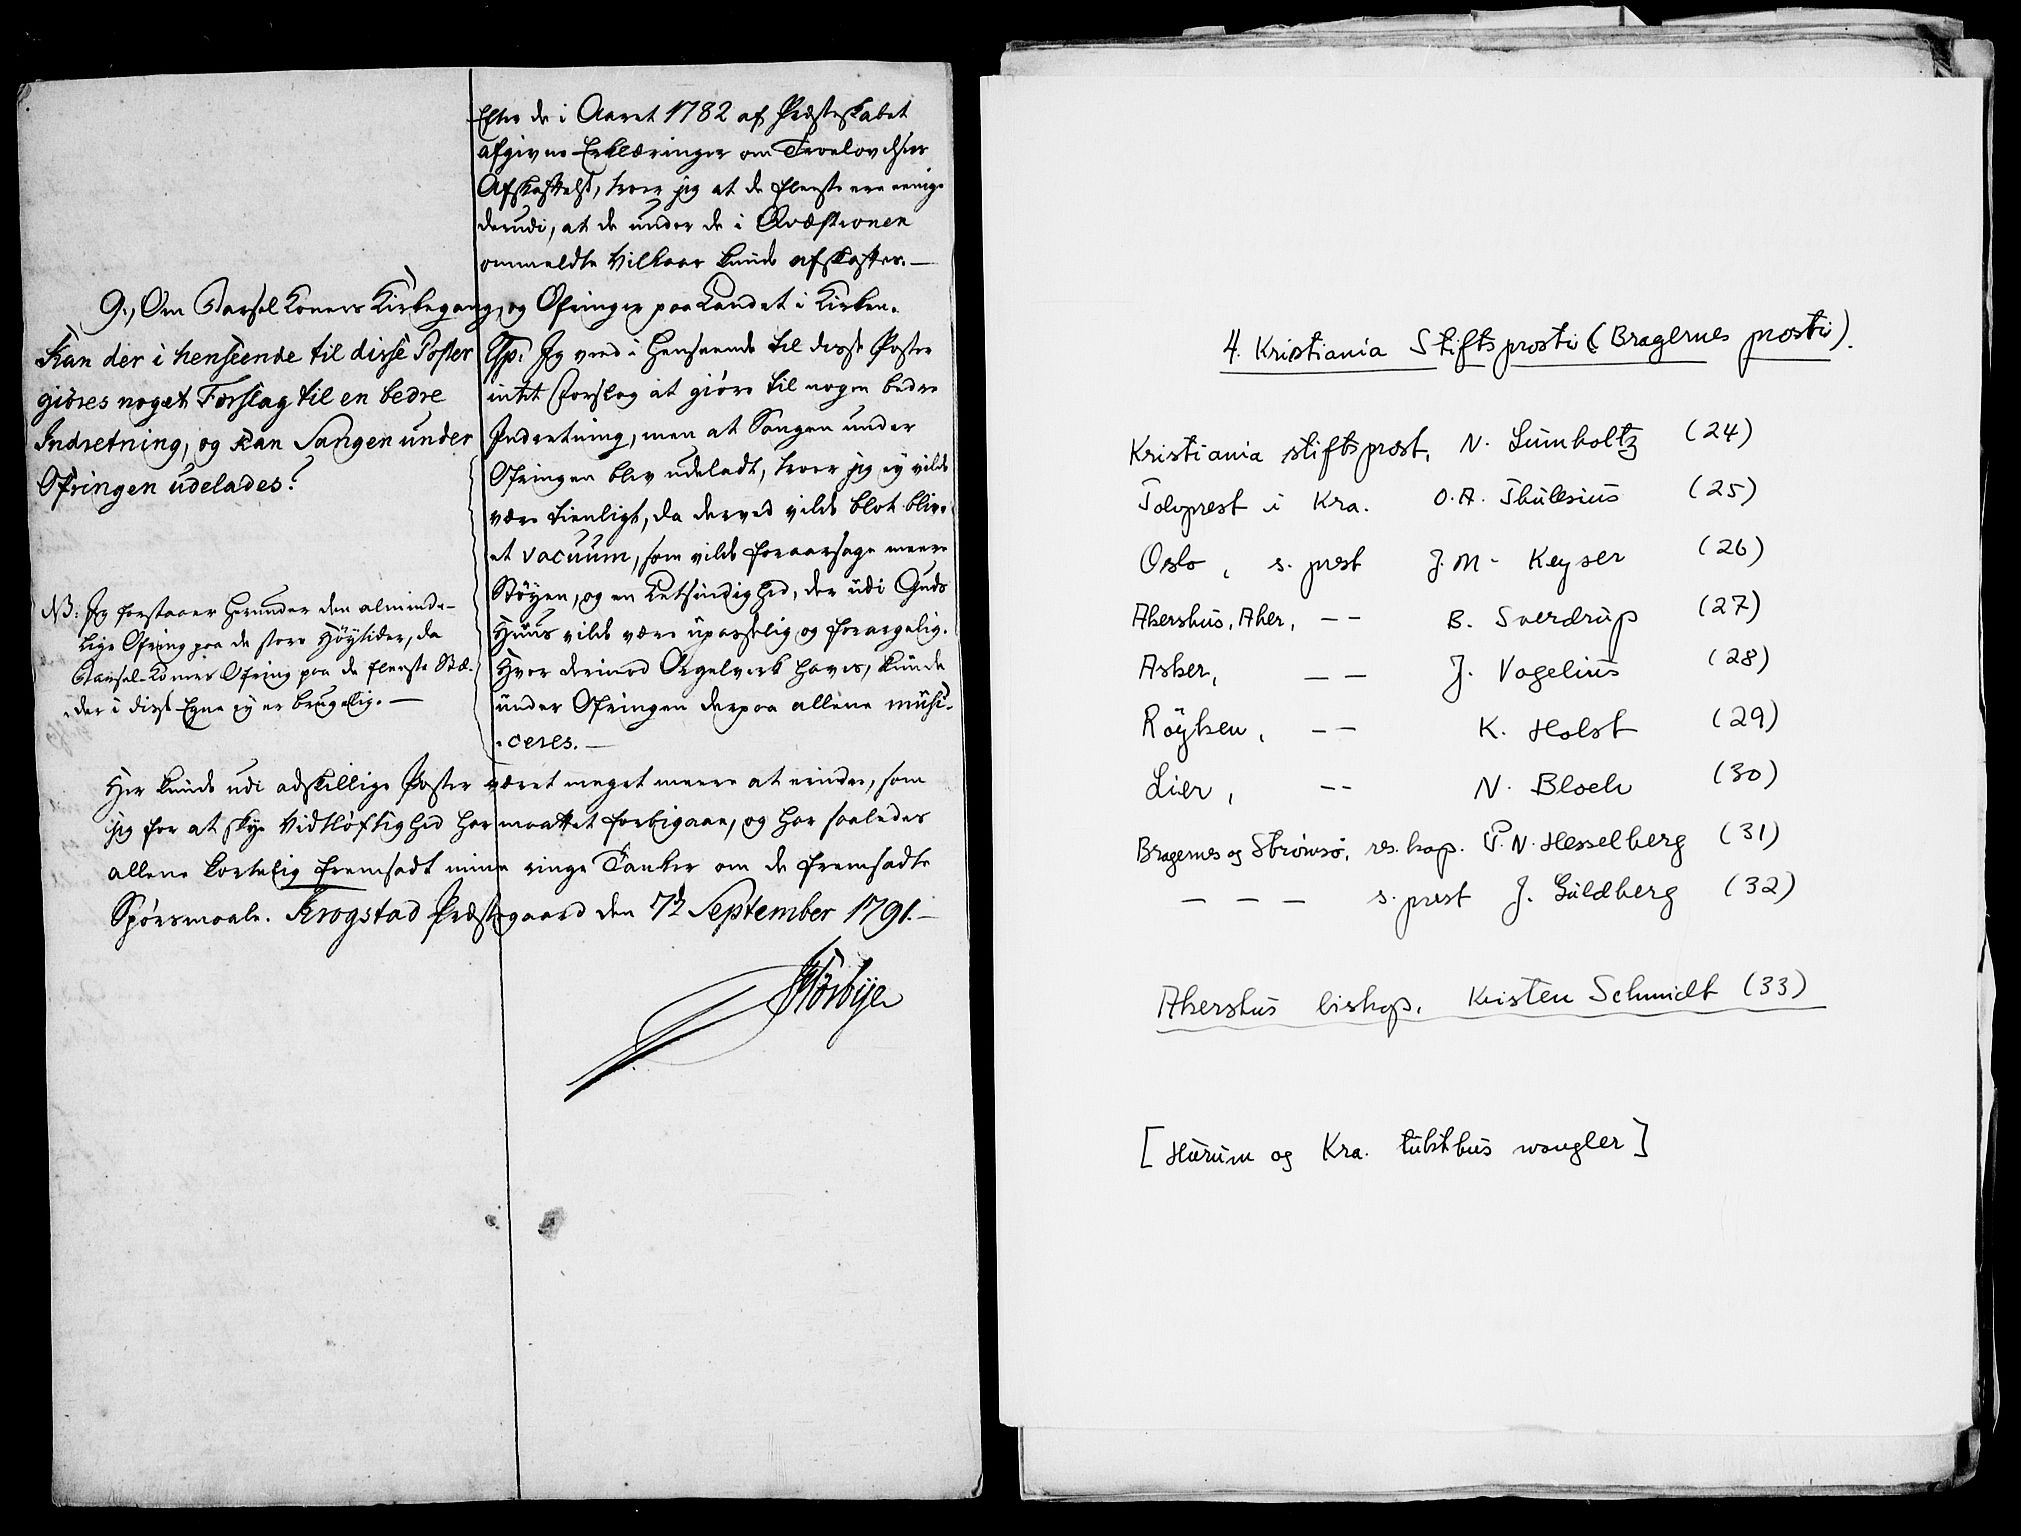 Efter de i Aaret 1782 af Præsteskabet
afgivne Erklæringer om Troelovelsers
Afskaffelse, troer jeg at de fleeste ere eenige
derudi, at de under de i Qvæstionen
ommeldte Vilkaar kunde afskaffes. —
9., Om Barsel Koners Kirkegang, og Ofringer paa Landet i Kirken.
Kan der i henseende til disse Poster
giöres noget Forslag til en bedre
Indretning, og kan Sangen under
Ofringen udelades?
NB: Jeg forstaaer herunder den alminde-
lige Ofring paa de store Höytider, da
Barsel-Koners Ofring paa de fleeste Stæ-
der i disse Egne ey er brugelig. —
Jeg veed i Henseende til disse Poster
intet Forslag at giöre til nogen bedre
Indretning, men at Sangen under
Ofringen blev udeladt, troer jeg ey vilde
være tienligt, da derved vilde blot blive
et vacuum, som vilde foraarsage meere
Støyen, og en Letsindighed, der udi Guds
Huus vilde være upasselig og forargelig.
Hvor derimod Orgelverk haves, kunde
under Ofringen derpaa allene musi-
ceres. —
Her kunde udi adskillige Poster været meget meere at erindre, som
jeg for at skye Vidtløftighed har maattet forbigaae, og har saaledes
allene kortelig fremsadt mine ringe Tanker om de fremsadte
Spörsmaale. Krogstad Præstegaard den 7d September 1791. —
Körbye
4. Kristiania Stiftsprosti (Bragernes prosti).
Kristiania stiftsprost, N. Lumholtz (24)
Tolvprest i Kra. O.A. Thulesius (25)
Oslo, s. prest J.M. Keyser (26)
Akershus, Aker, — — B. Sverdrup (27)
Asker, — — J. Vogelius (28)
Röyken, — — K. Holst (29)
Lier, — — N. Bloch (30)
Bragernes og Strömsö, res. kap. P.N. Hesselberg (31)
— — — s. prest J. Guldberg (32)
Akershus biskop, Kristen Schmidt (33)
[Hurum og Kra. tukthus mangler]